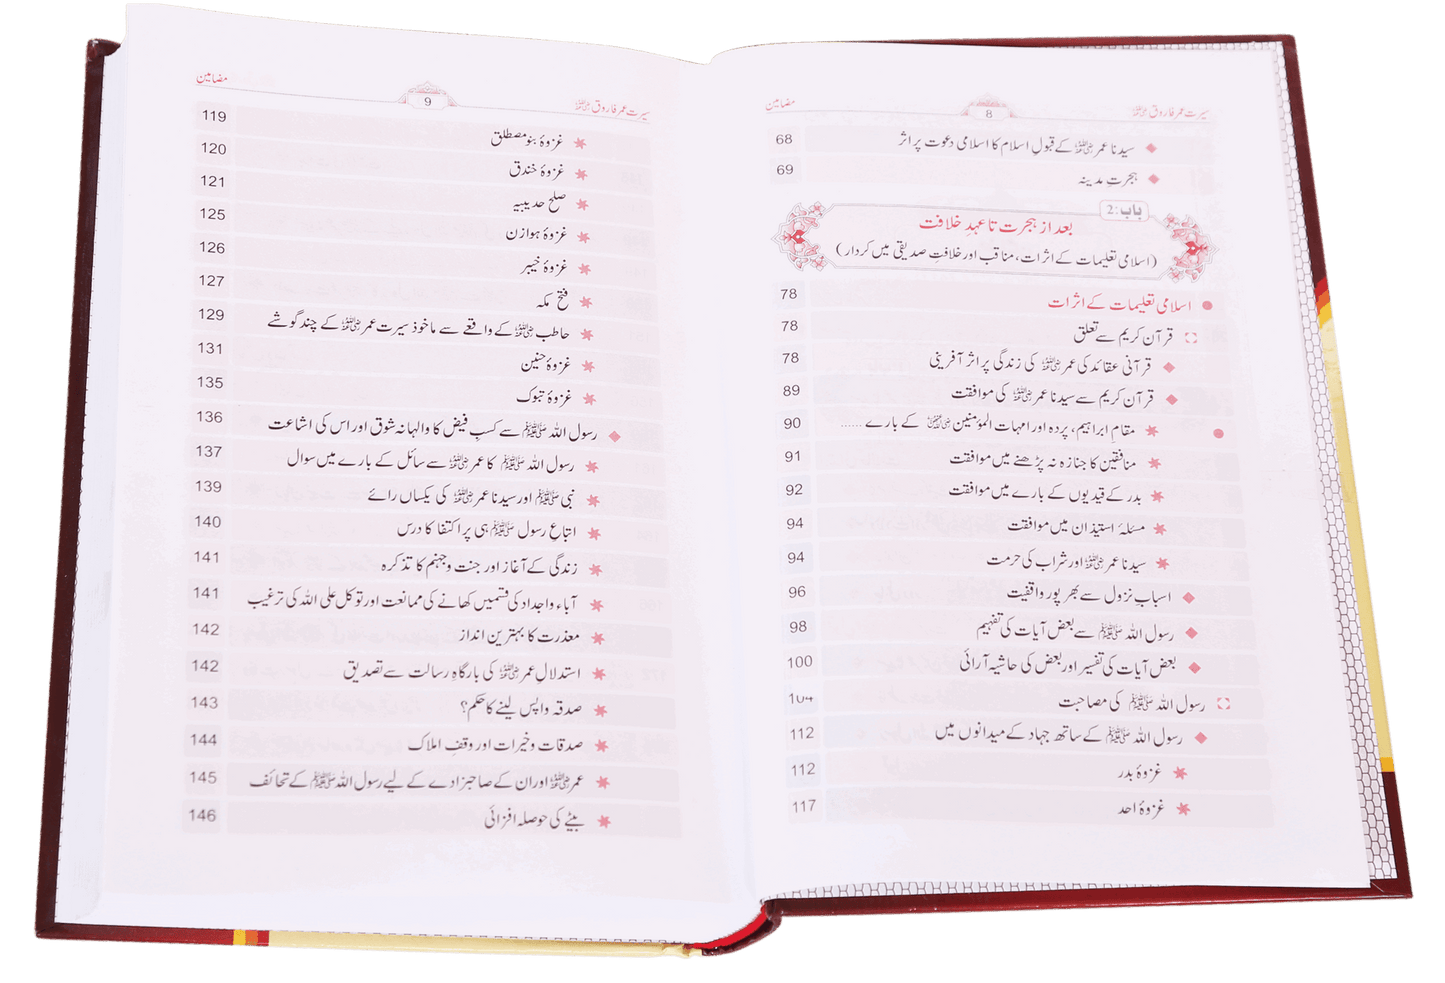 سیرت عمر فاروق رضی اللہ عنہ 8 مضامین
سیدنا عمر رضی اللہ عنہ کے قبولِ اسلام کا اسلامی دعوت پر اثر 68
ہجرتِ مدینہ 69
باب:2
بعد از ہجرت تا عہدِ خلافت
(اسلامی تعلیمات کے اثرات، مناقب اور خلافت صدیقی میں کردار)
اسلامی تعلیمات کے اثرات 78
قرآن کریم سے تعلق 78
قرآنی عقائد کی عمر رضی اللہ عنہ کی زندگی پر اثر آفرینی 78
قرآن کریم سے سیدنا عمر رضی اللہ عنہ کی موافقت 89
مقامِ ابراہیم، پردہ اور امہات المؤمنین رضی اللہ عنہن کے بارے ...... 90
منافقین کا جنازہ نہ پڑھنے میں موافقت 91
بدر کے قیدیوں کے بارے میں موافقت 92
مسئلۂ استیذان میں موافقت 94
سیدنا عمر رضی اللہ عنہ اور شراب کی حرمت 94
اسبابِ نزول سے بھر پور واقفیت 96
رسول اللہ ﷺ سے بعض آیات کی تفہیم 98
بعض آیات کی تفسیر اور بعض کی حاشیہ آرائی 100
رسول اللہ ﷺ کی مصاحبت 104
رسول اللہ ﷺ کے ساتھ جہاد کے میدانوں میں 112
غزوۂ بدر 112
غزوۂ احد 117
سیرت عمر فاروق رضی اللہ عنہ 9 مضامین
غزوۂ بنو مصطلق 119
غزوۂ خندق 120
صلح حدیبیہ 121
غزوۂ ہوازن 125
غزوۂ خیبر 126
فتح مکہ 127
حاطب رضی اللہ عنہ کے واقعے سے ماخوذ سیرت عمر رضی اللہ عنہ کے چند گوشے 129
غزوۂ حنین 131
غزوۂ تبوک 135
رسول اللہ ﷺ سے کسبِ فیض کا والہانہ شوق اور اس کی اشاعت 136
رسول اللہ ﷺ کا عمر رضی اللہ عنہ سے سائل کے بارے میں سوال 137
نبی ﷺ اور سیدنا عمر رضی اللہ عنہ کی یکساں رائے 139
اتباع رسول ﷺ ہی پر اکتفا کا درس 140
زندگی کے آغاز اور جنت و جہنم کا تذکرہ 141
آباء و اجداد کی قسمیں کھانے کی ممانعت اور توکل علی اللہ کی ترغیب 141
معذرت کا بہترین انداز 142
استدلالِ عمر رضی اللہ عنہ کی بارگاہِ رسالت سے تصدیق 142
صدقہ واپس لینے کا حکم؟ 143
صدقات و خیرات اور وقفِ املاک 144
عمر رضی اللہ عنہ اور ان کے صاحبزادے کے لیے رسول اللہ ﷺ کے تحائف 145
بیٹے کی حوصلہ افزائی 146